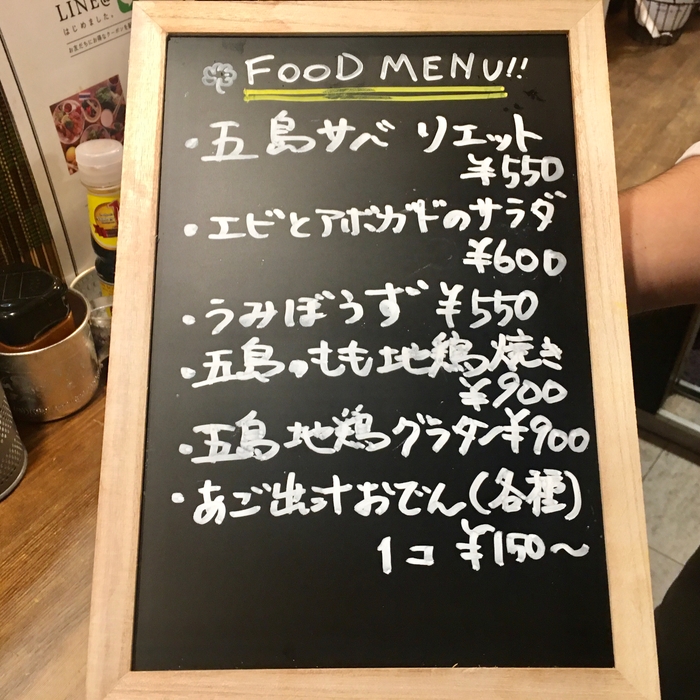 LINE@
はじめました。
FOOD MENU!!
・五島サバ リエット
¥550
・エビとアボカドのサラダ
¥600
・うみぼうず ¥550
・五島のもも地鶏焼き
¥900
・五島地鶏グラタン ¥900
・あご出汁おでん(各種)
1コ ¥150〜